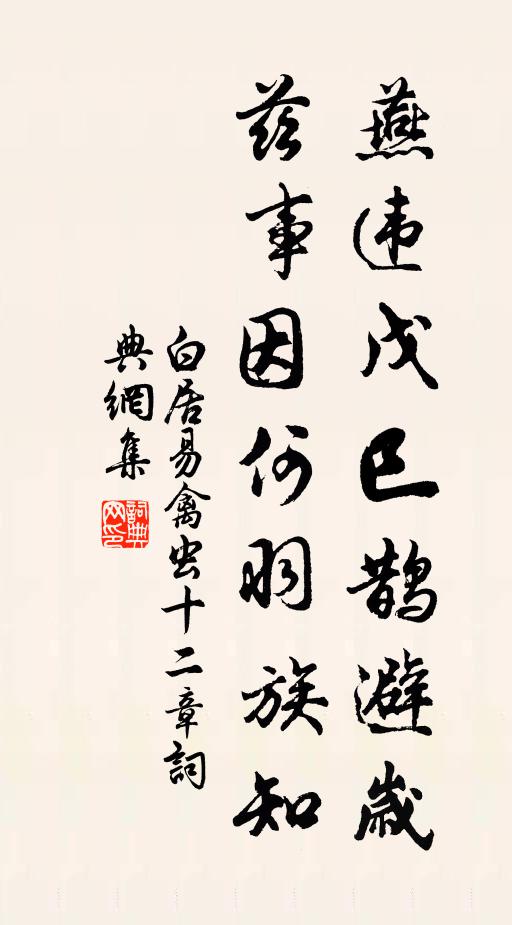 燕违戊巳鹊避岁
兹事因何羽族知
白居易禽虫十二章詞
典網集
詞典网印